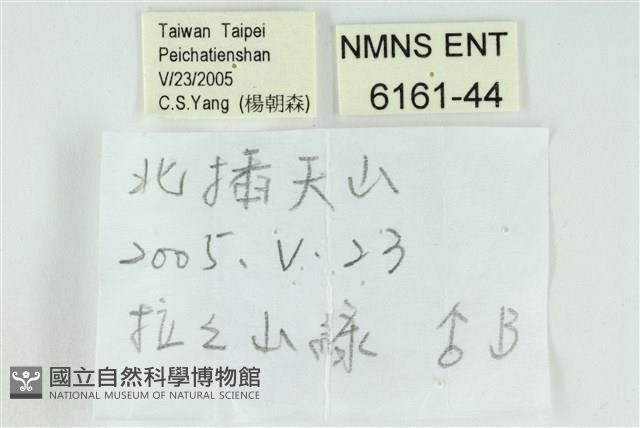 Taiwan Taipei
Peichatienshan
V/23/2005
C.S.Yang (楊朝森)
NMNS ENT
6161-44
北插天山
2005. V. 23
拉拉山綠 ♂ B
國立自然科學博物館
NATIONAL MUSEUM OF NATURAL SCIENCE